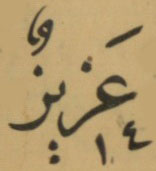 عَزيزٌ
١٤